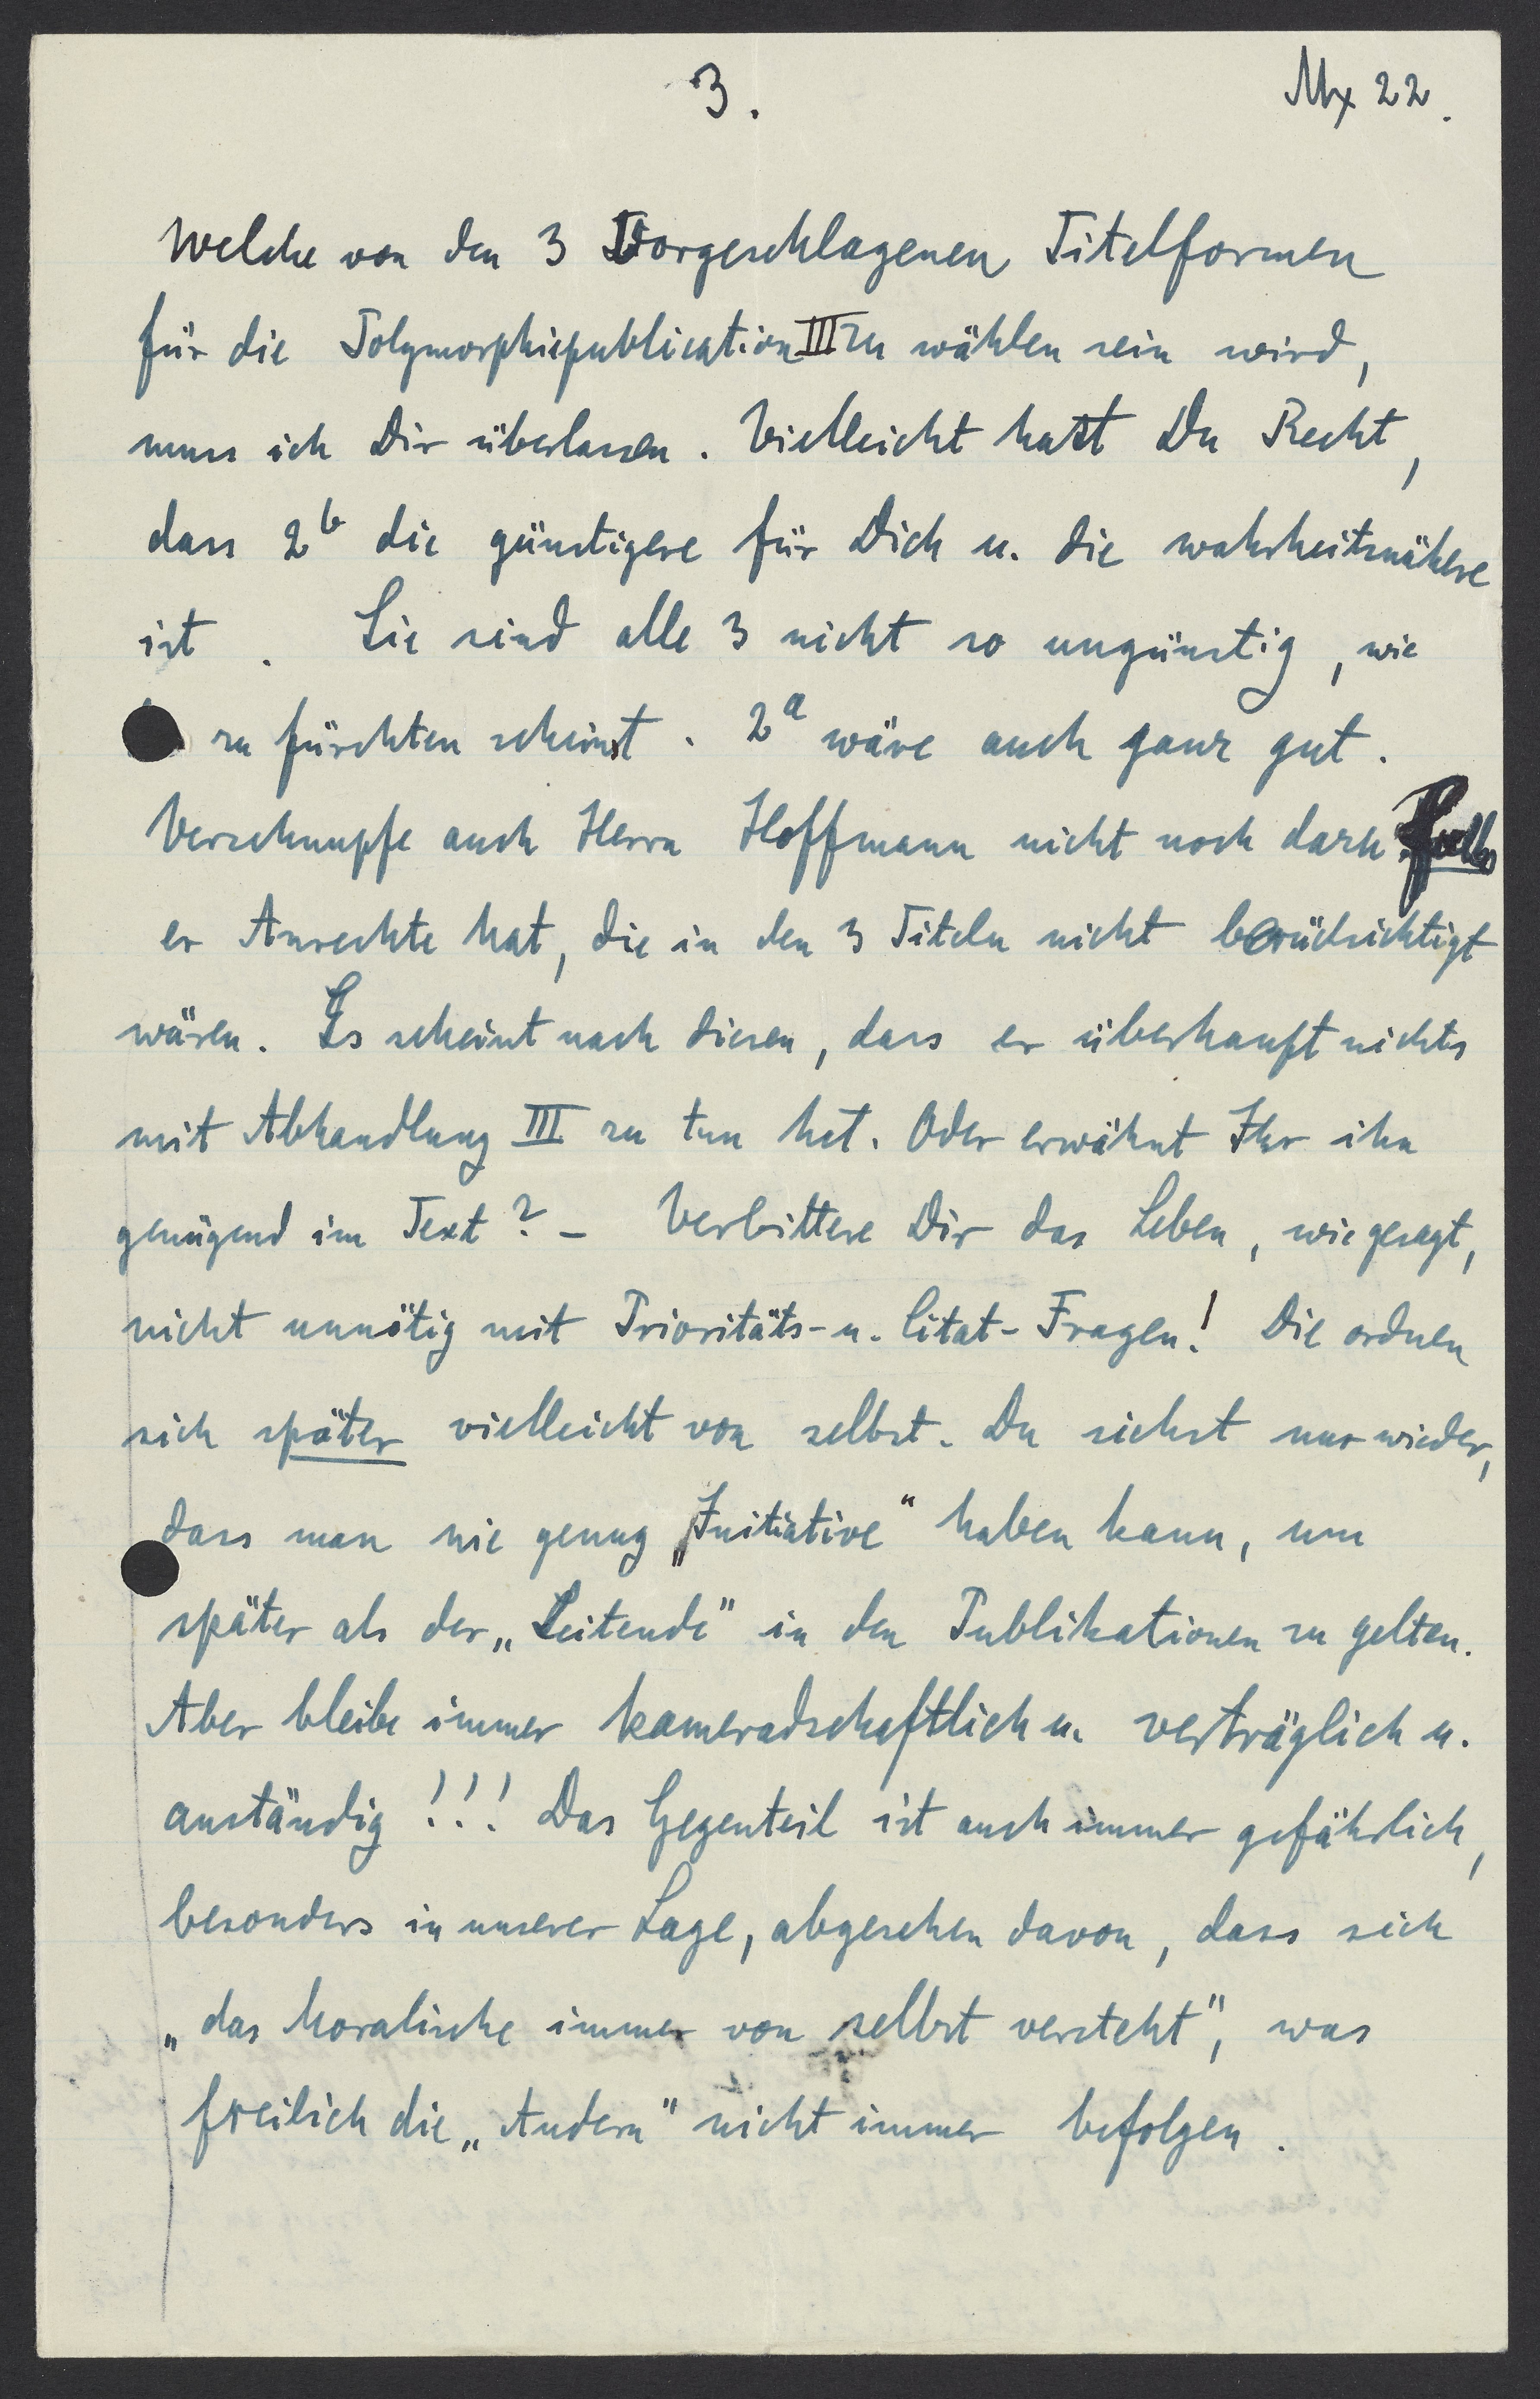 3.
Mx 22.
Welche von den 3 Vorgeschlagenen Titelformen
für die Polymorphiepublication III zu wählen sein wird,
muss ich Dir überlassen. Vielleicht hast Du Recht,
dass 2b die günstigere für Dich u. die wahrheitsnähere
ist. Sie sind alle 3 nicht so ungünstig, wie
zu fürchten scheinst. 2a wäre auch ganz gut.
Verschnupfe auch Herrn Hoffmann nicht noch dazu falls
er Anrechte hat, die in den 3 Titeln nicht berücksichtigt
wären. Es scheint nach diesen, dass er überhaupt nichts
mit Abhandlung III zu tun hat. Oder erwähnt Ihr ihn
genügend im Text? – Verbittere Dir das Leben, wie gesagt,
nicht unnötig mit Prioritäts- u. Citat-Fragen! Die ordnen
sich später vielleicht von selbst. Du siehst nur wieder,
dass man nie genug „Initiative“ haben kann, um
später als der „Leitende“ in den Publikationen zu gelten.
Aber bleibe immer kameradschaftlich u. verträglich u.
anständig!!! Das Gegenteil ist auch immer gefährlich,
besonders in unserer Lage, abgesehen davon, dass sich
„das Moralische immer von selbst versteht“, was
freilich die „Andern“ nicht immer befolgen.